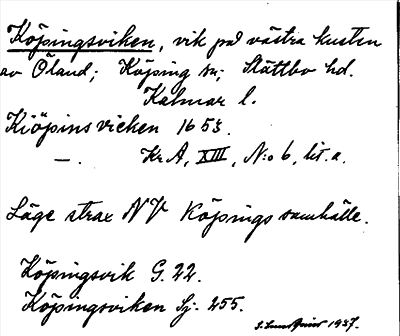 Köpingsviken, vik på västra kusten
av Öland; Köping sn; Slättbo hd.
Kalmar l.
Kiöpins vicken 1653.
—. Kr A, XIII, N:o 6, lit. a.
Läge strax NV Köpings samhälle.
Köpingsvik G. 22.
Köpingsviken Sj. 255.
1937.